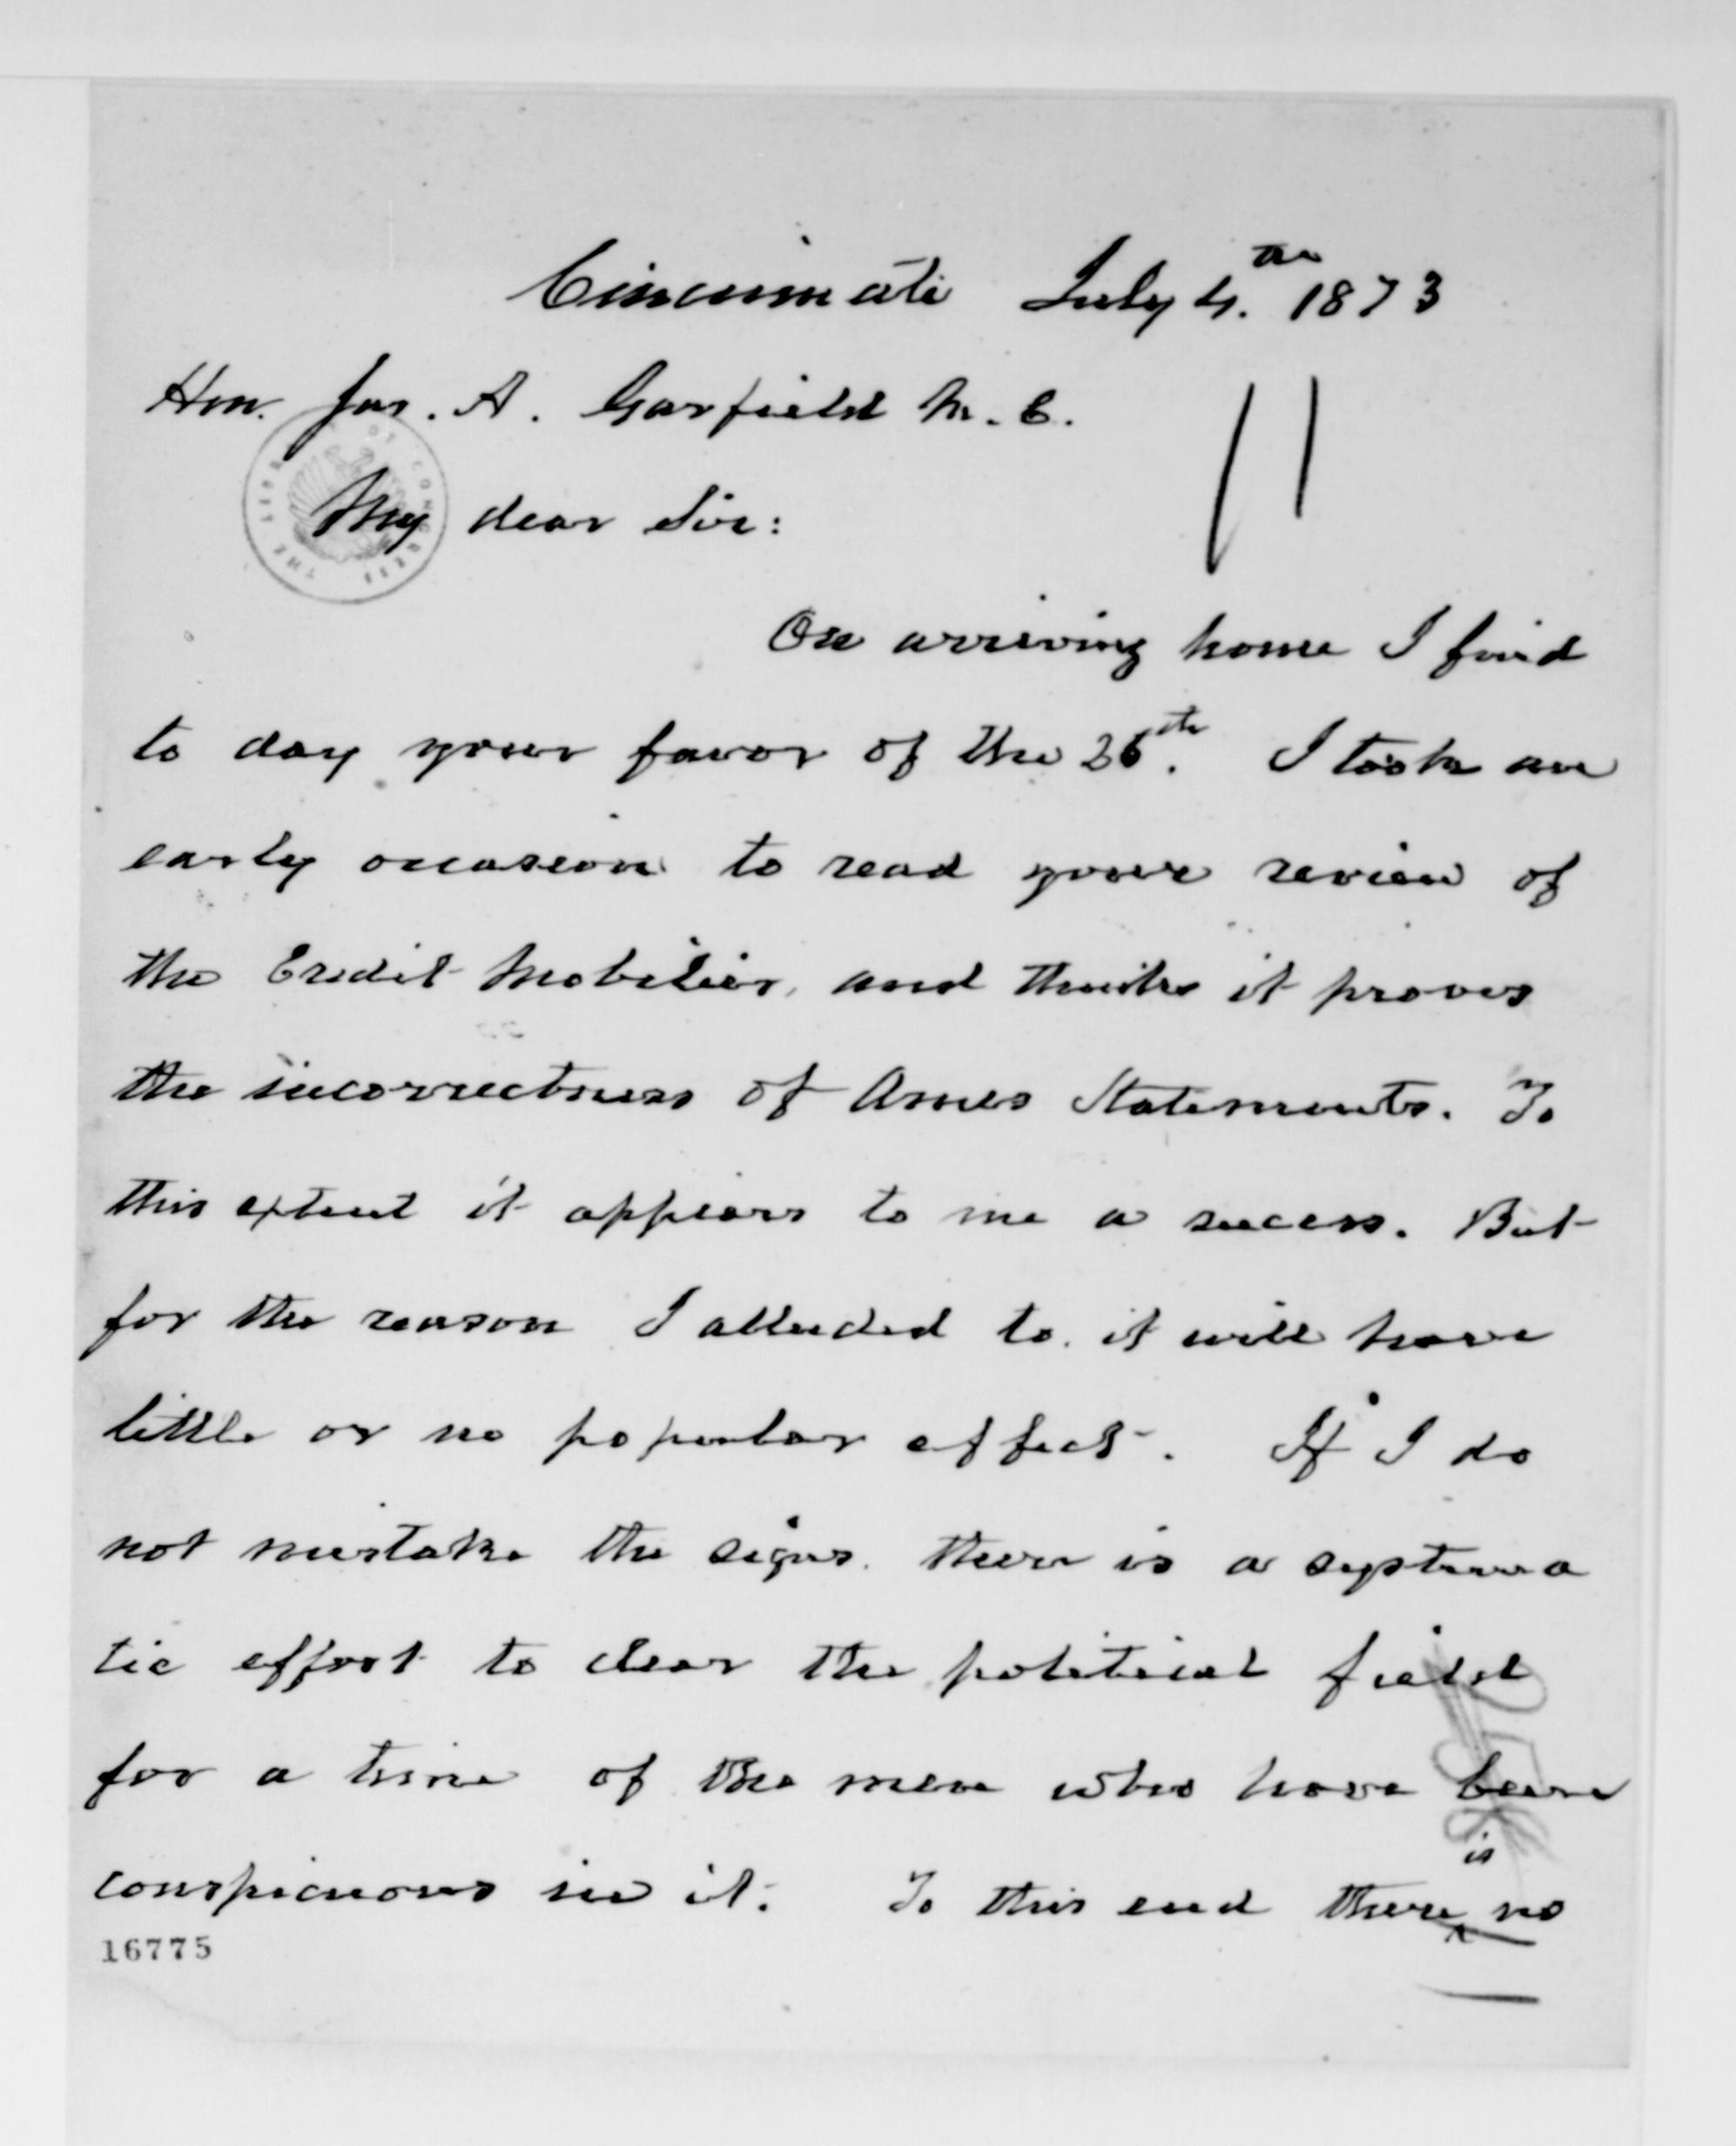 Cincinnati July 4.th 1873
Hon. Jas. A. Garfield M. C.
THE LIBRARY OF CONGRESS
My dear Sir:
On arriving home I find
to day your favor of the 26th. I took an
early occasion to read your review of
the Credit Mobilier, and think it proves
the incorrectness of Ames Statements. To
this extent it appears to me a success. But
for the reason I alluded to. it will have
little or no popular effect. If I do
not mistake the signs. there is a systema
tic effort to clear the political field
for a time of the men who have been
conspicuous in it. To this end there is no
16775